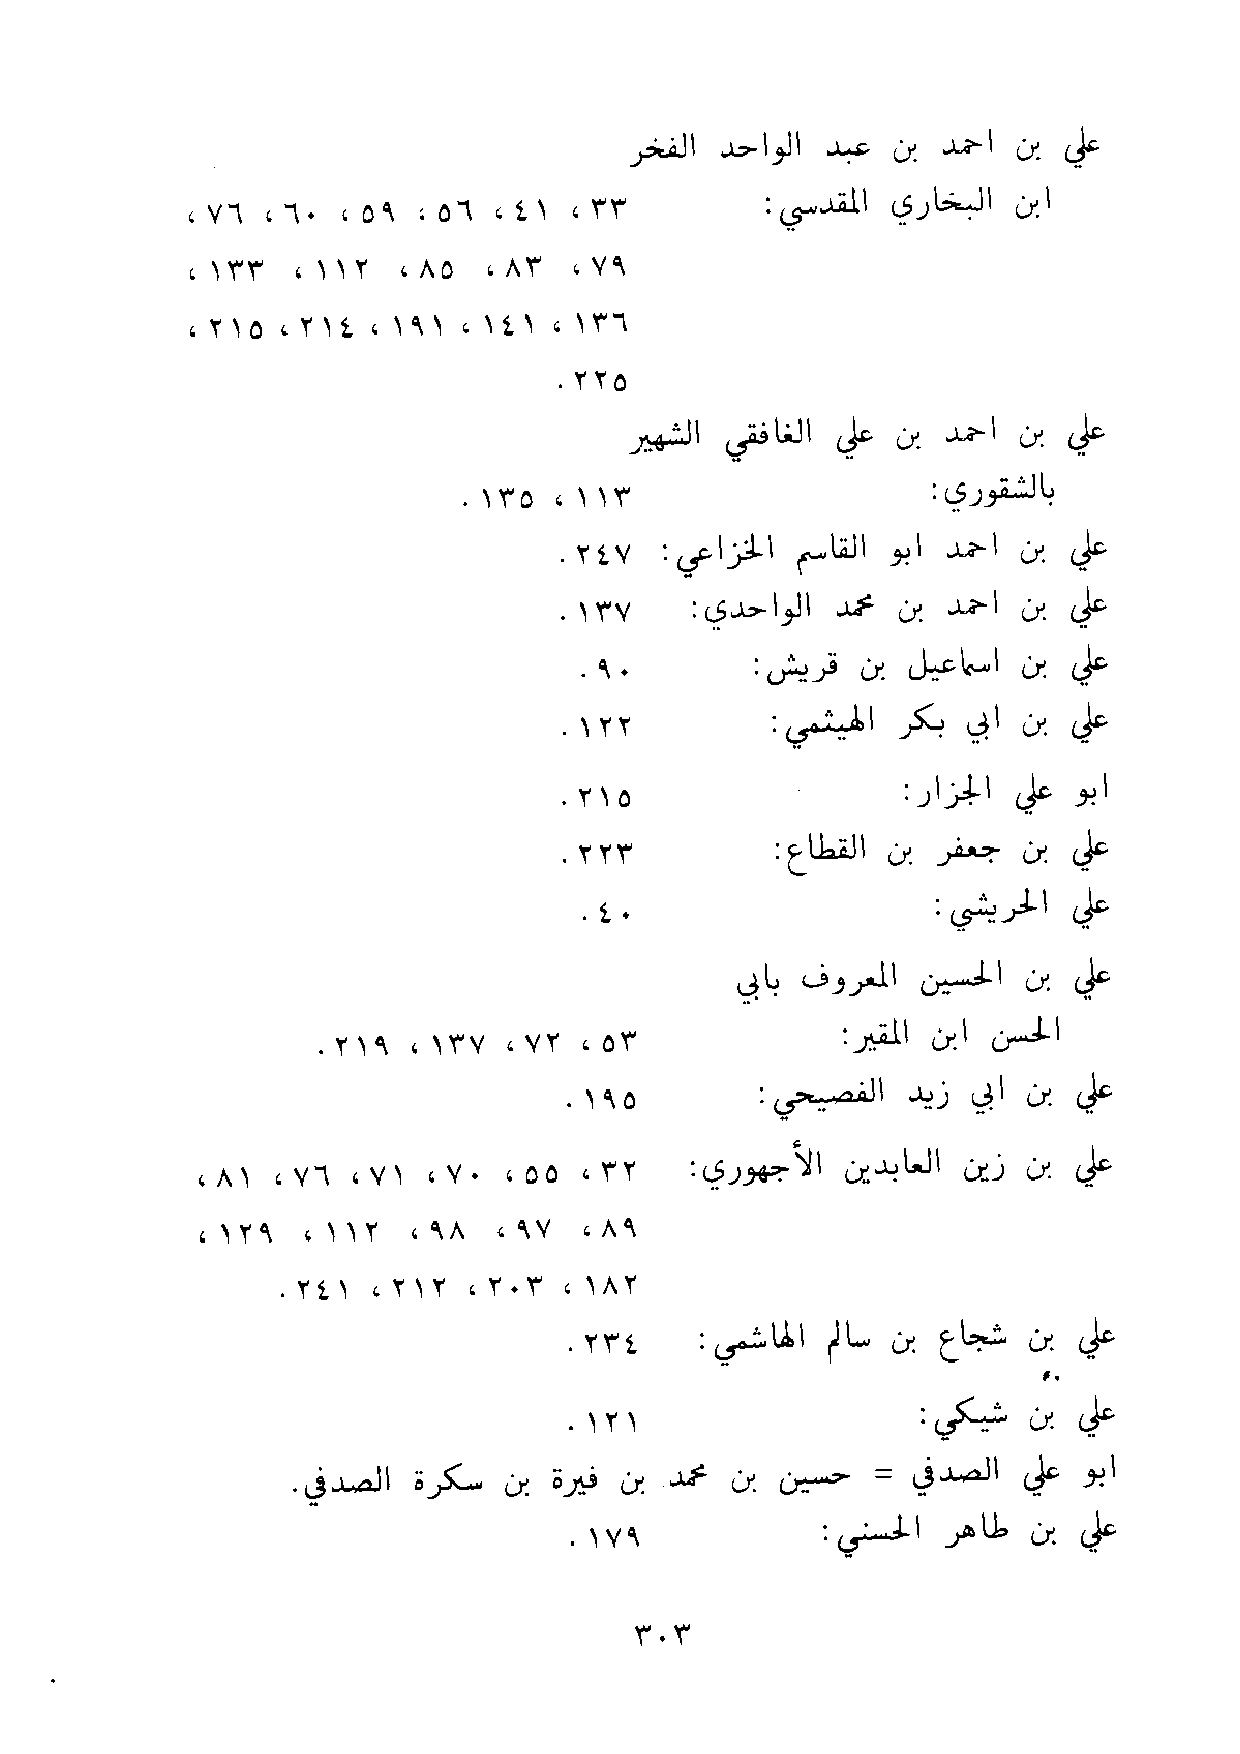 علي بن احمد بن عبد الواحد الفخر
ابن البخاري المقدسي: ٣٣ ، ٤١ ، ٥٦ ، ٥٩ ، ٦٠ ، ٧٦ ،
٧٩ ، ٨٣ ، ٨٥ ، ١١٢ ، ١٣٣ ،
١٣٦ ، ١٤١ ، ١٩١ ، ٢١٤ ، ٢١٥ ،
٢٢٥ .
علي بن احمد بن علي الغافقي الشهير
بالشقوري: ١١٣ ، ١٣٥ .
علي بن احمد ابو القاسم الخزاعي: ٢٤٧ .
علي بن احمد بن محمد الواحدي: ١٣٧ .
علي بن اسماعيل بن قريش: ٩٠ .
علي بن ابي بكر الهيثمي: ١٢٢ .
ابو علي الجزار: ٢١٥ .
علي بن جعفر بن القطاع: ٢٢٣ .
علي الحريشي: ٤٠ .
علي بن الحسين المعروف بابي
الحسن ابن المقير: ٥٣ ، ٧٢ ، ١٣٧ ، ٢١٩ .
علي بن ابي زيد الفصيحي: ١٩٥ .
علي بن زين العابدين الأجهوري: ٣٢ ، ٥٥ ، ٧٠ ، ٧١ ، ٧٦ ، ٨١ ،
٨٩ ، ٩٧ ، ٩٨ ، ١١٢ ، ١٢٩ ،
١٨٢ ، ٢٠٣ ، ٢١٢ ، ٢٤١ .
علي بن شجاع بن سالم الهاشمي: ٢٣٤ .
علي بن شيكي: ١٢١ .
ابو علي الصدفي = حسين بن محمد بن فيرة بن سكرة الصدفي.
علي بن طاهر الحسني: ١٧٩ .
٣٠٣